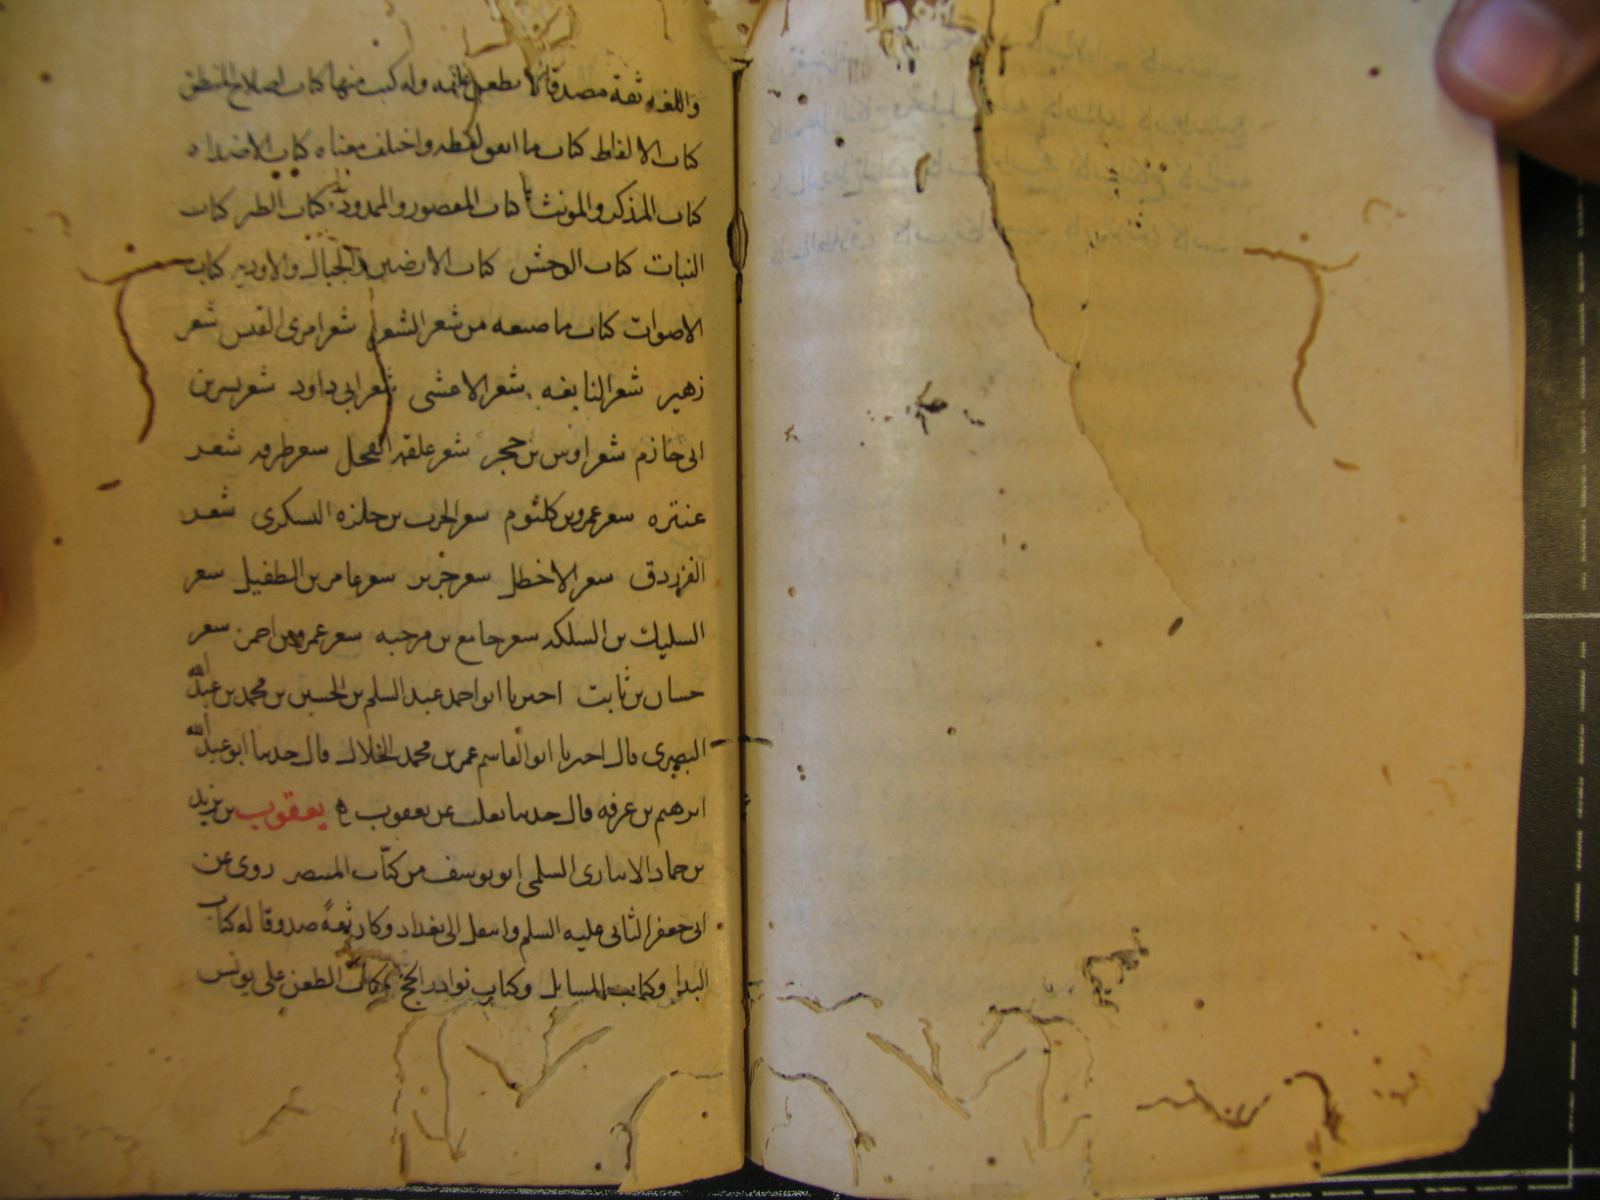 واللغه ثقة مصدقا لا يطعن عليه وله كتب منها كتاب اصلاح المنطق
كتاب الالفاظ كتاب ما اتفق لفظه واختلف معناه كتاب الاضداد
كتاب المذكر والمونث كتاب المقصور والممدود كتاب الطير كتاب
النبات كتاب الوحش كتاب الارضين والجبال والاوديه كتاب
الاصوات كتاب ما صنعه من شعر الشعرا شعر امرى القيس شعر
زهير شعر النابغه شعر الاعشى شعر ابى داود شعر بسر بن
ابى خازم شعر اوس بن حجر شعر علقمه الفحل سعر طرفه شعر
عنتره سعر عمرو بن كلثوم سعر الحرث بن حلزه اليسكرى شعر
الفرزدق سعر الاخطل سعر جرير سعر عامر بن الطفيل سعر
السليك بن السلكه سعر جامع بن مرخيه سعر عمرو بن احمر سعر
حسان بن ثابت اخبرنا ابو احمد عبد السلم بن الحسين بن محمد بن عبد الله
البصرى قال اخبرنا ابو القاسم عمر بن محمد الخلال قال حدثنا ابو عبد الله
ابرهيم بن عرفه قال حدثنا ثعلب عن يعقوب ه يعقوب بن يزيد
بن حماد الانبارى السلمى ابو يوسف من كتّاب المنتصر روى عن
ابى جعفر الثانى عليه السلم وانتقل الى بغداد وكان ثقةً صدوقا له كتاب
البدا وكتاب المسايل وكتاب نوادر الحج كتاب الطعن على يونس